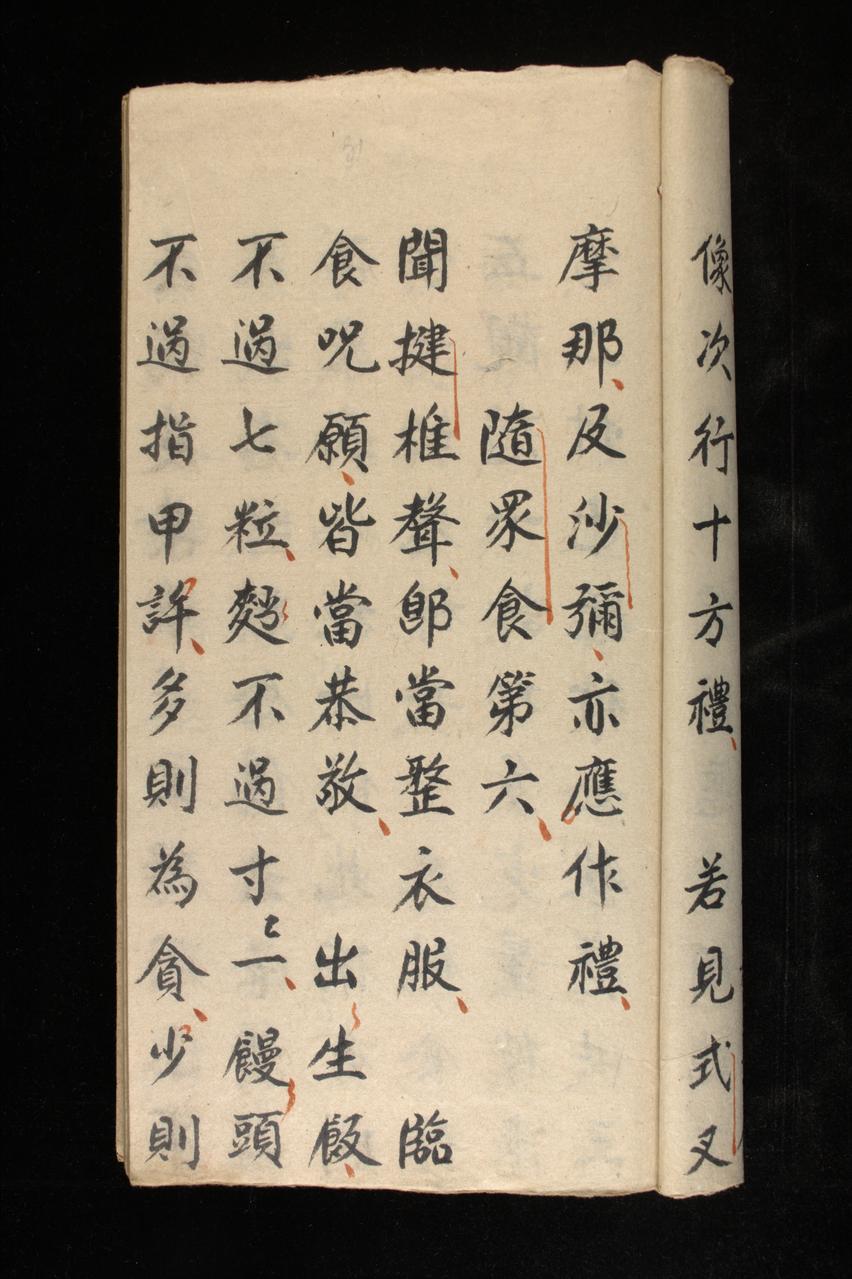 像次行十方禮、 若見式叉
摩那、及沙彌、亦應作禮、
隨眾食第六、
聞揵椎聲、即當整衣服、 臨
食呪願、皆當恭敬、 出生飯、
不過七粒、麪不過寸一、饅頭
不過指甲許、多則為貪、少則